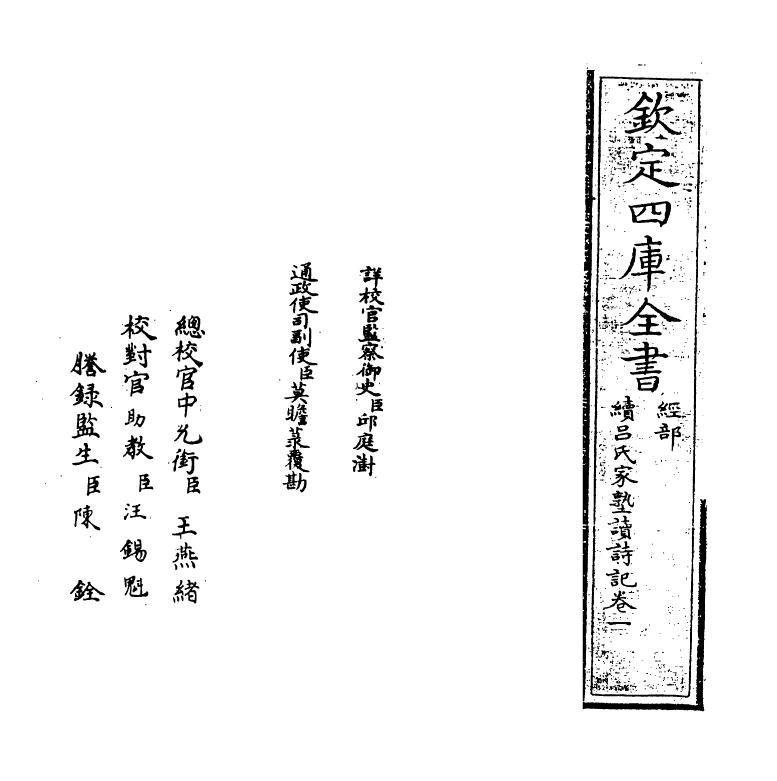 欽定四庫全書
經部
續呂氏家塾讀詩記卷一
詳校官監察御史臣邱庭漋
通政使司副使臣莫瞻菉覆勘
總校官中允銜臣王燕緒
校對官助教臣汪錫魁
謄録監生臣陳銓